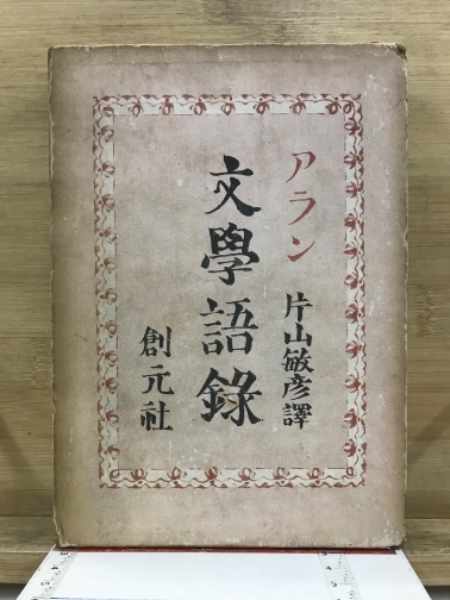 アラン
片山敏彦譯
文學語錄
創元社